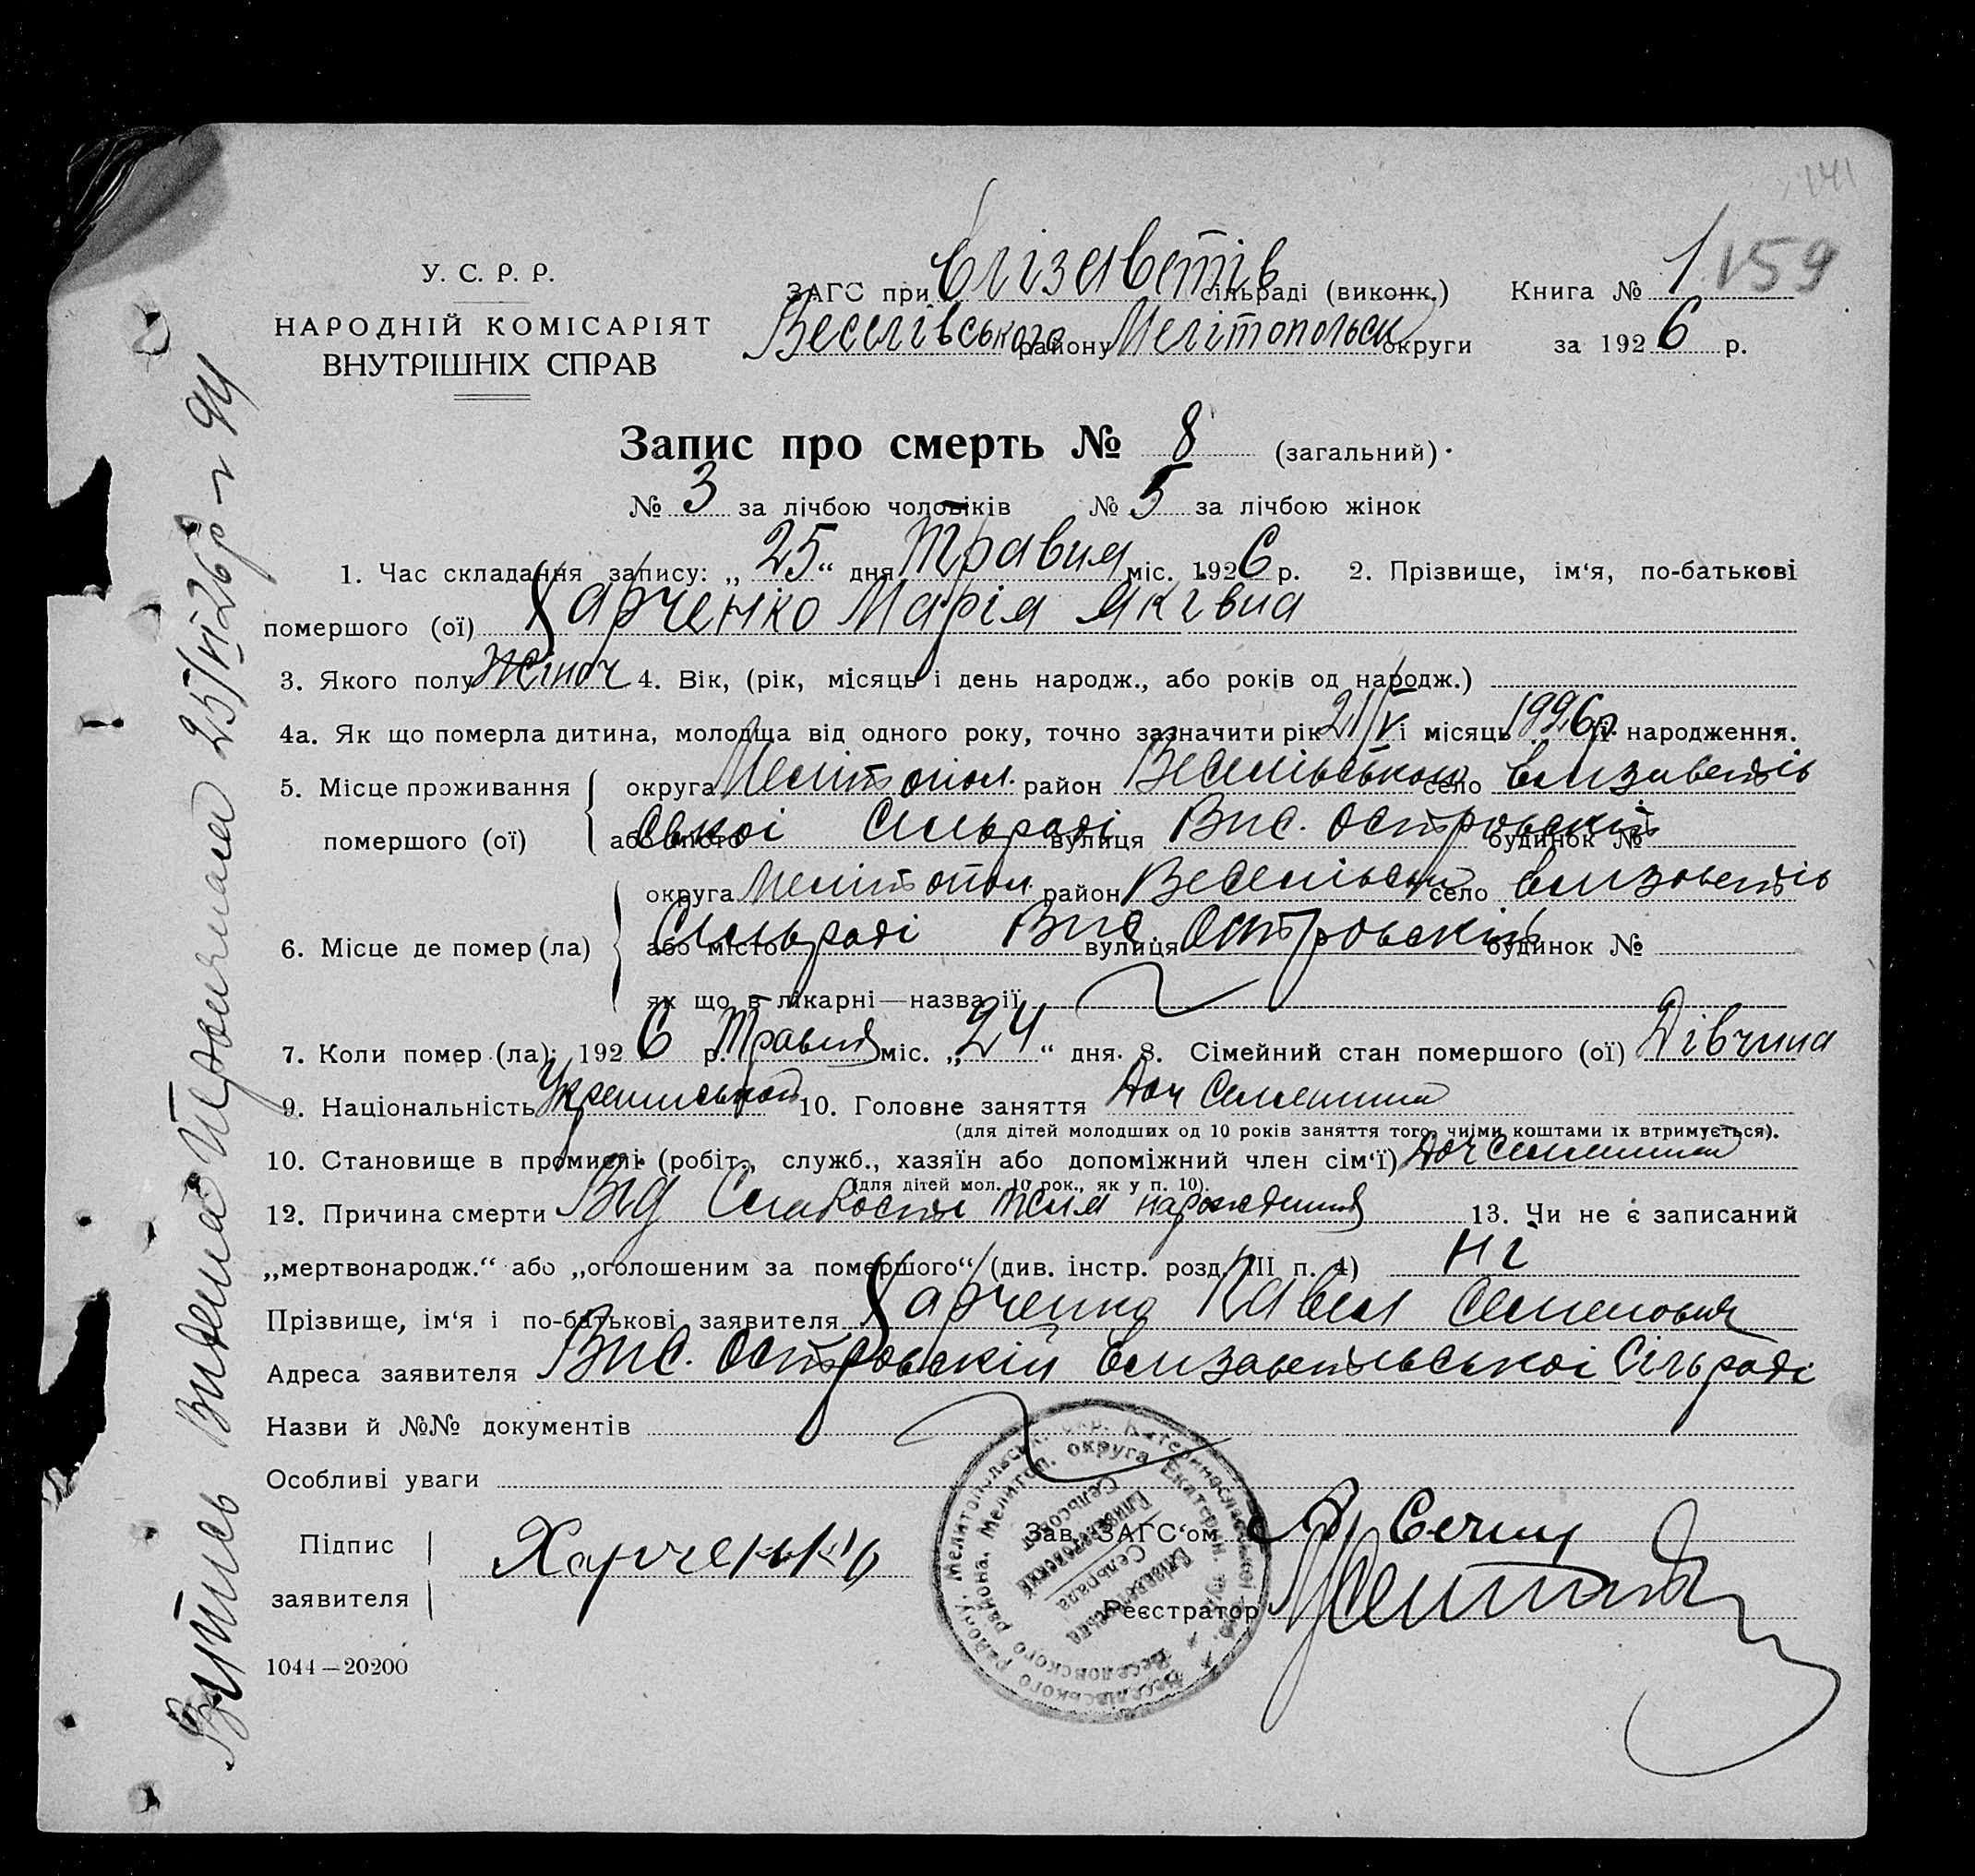 141
У. С. Р. Р.
НАРОДНІЙ КОМІСАРІЯТ
ВНУТРІШНІХ СПРАВ
ЗАГС при Єлізаветів сільраді (виконк.) Книга № 1 159
Веселівського району Мелітопольск округи за 1926 р.
Запис про смерть № 8 (загальний)
№ 3 за лічбою чоловіків № 5 за лічбою жінок
1. Час складання запису: „25“ дня Травня міс. 1926 р. 2. Прізвище, ім‘я, по-батькові
помершого (ої) Харченко Марія Яківна
3. Якого полу Жіноч 4. Вік, (рік, місяць і день народж., або років од народж.)
4а. Як що померла дитина, молодща від одного року, точно зазначити рік 21/V і місяць 1926 р. її народження.
5. Місце проживання округа Мелітопол. район Веселівськом село Єлизаветів
помершого (ої) або місто ської Сільраді вулиця Вис. Островский будинок №
округа Мелітопол. район Веселівськ село Єлизаветів
6. Місце де помер (ла) або місто Сільраді Вис. вулиця Островскій будинок №
як що в лікарні—назва її
7. Коли помер (ла): 1926 р. Травня міс. „24“ дня. 8. Сімейний стан помершого (ої) Дівчина
9. Національність 10. Головне заняття Доч Селянина
(для дітей молодших од 10 років заняття того, чиїми коштами їх втримується).
10. Становище в промислі (робіт., служб., хазяїн або допоміжний член сім‘ї) Доч Селянина
(для дітей мол. 10 рок., як у п. 10).
12. Причина смерти Від Слабости після народження 13. Чи не є записаний
„мертвонародж.“ або „оголошеним за помершого“ (див. інстр. розд. III п. 4) Ні
Прізвище, ім‘я і по-батькові заявителя Харченко Павел Семенович
Адреса заявителя Вис. Островскій Єлизаветівської Сільраді
Назви й №№ документів
Особливі уваги
Підпис заявителя Харченко
Зав. ЗАГС‘ом
Реєстратор
1044—20200
Веселівського району, Мелітопольськ. окр. Катеринославської губ.
Веселовского района, Мелитоп. округа Екатерин. губ.
Єлизаветівська Сельрада
Елизаветовский Сельсовет
Витись Видена 25/VI 26 р